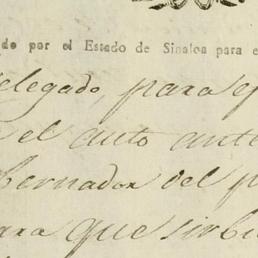 do por el Estado de Sinaloa para e
elegado, para q
el auto ante
bernador del p
ara que sirbi